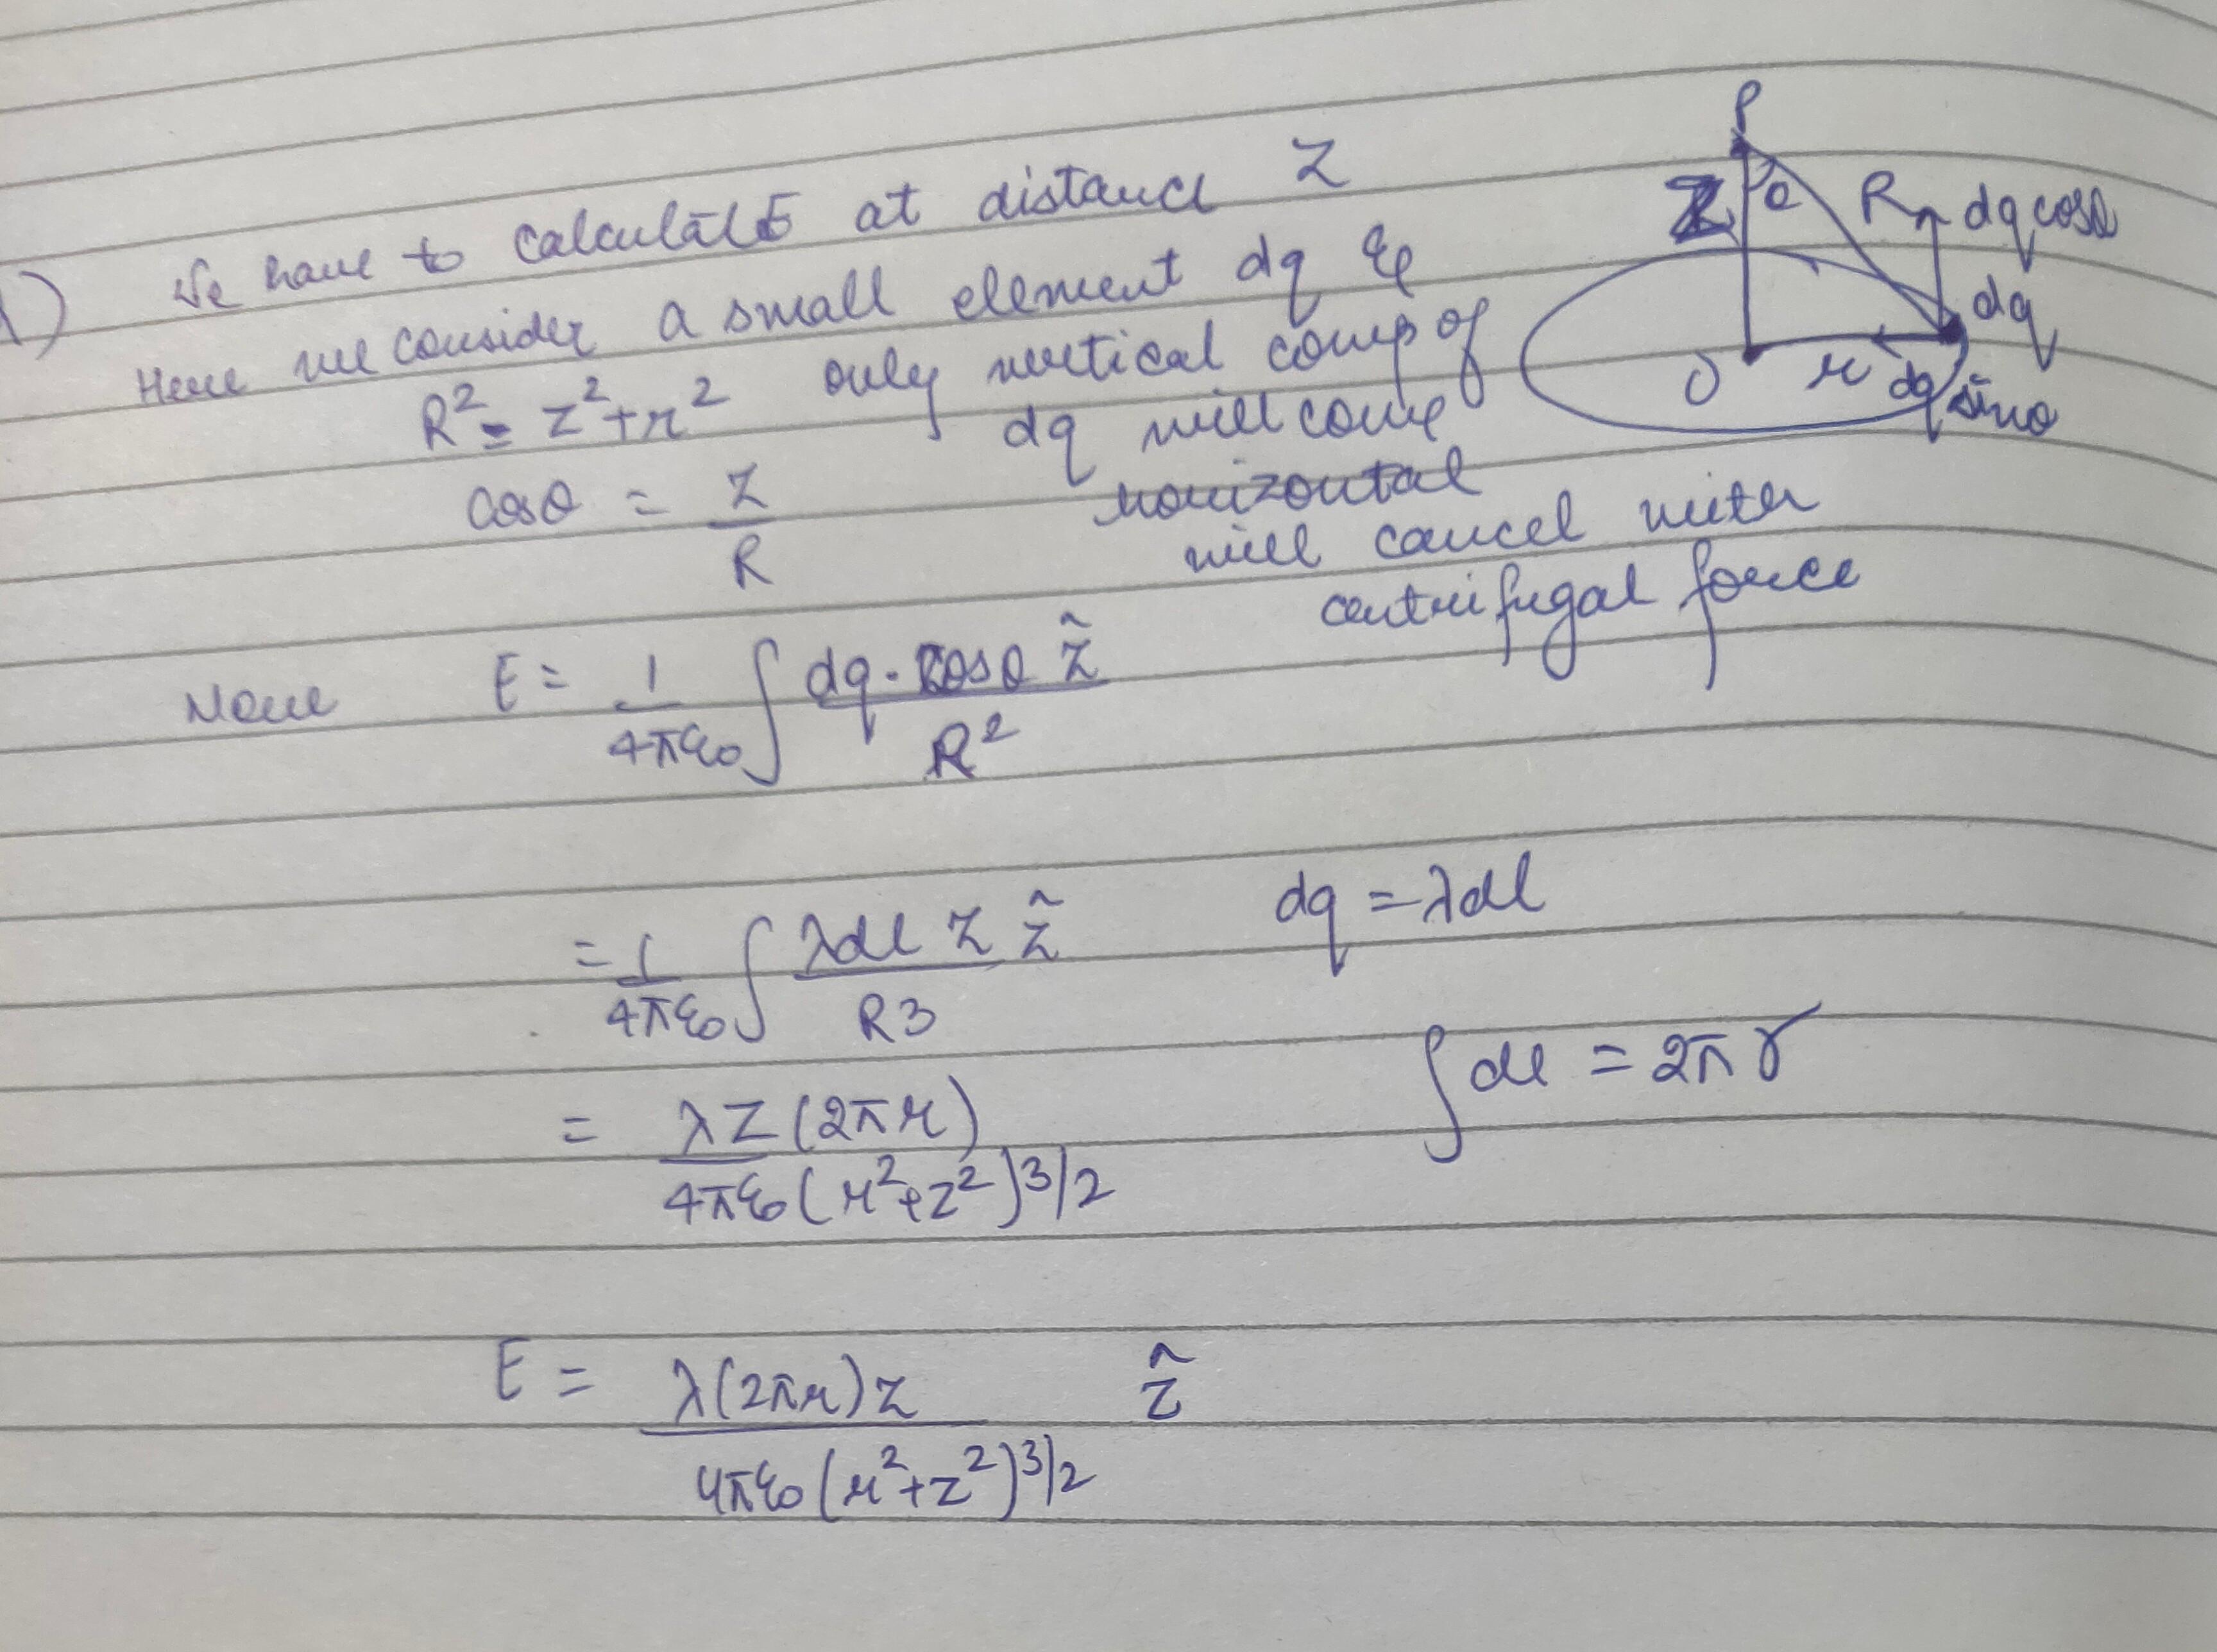 1) We have to calculate E at distance Z
Here we consider a small element dq &
R² = z² + r² only vertical comp of
dq will come
cosθ = z/R
horizontal
will cancel
centrifugal force
P
Z θ R dq cosθ
dq
O r dq sinθ
E = 1/4πε₀ ∫ dq · cosθ ẑ / R²
= 1/4πε₀ ∫ λdl z ẑ / R3 dq = λdl
= λZ(2πr) / 4πε₀(r²+z²)3/2 ∫dl = 2πr
E = λ(2πr)z / 4πε₀(r²+z²)3/2 ẑ